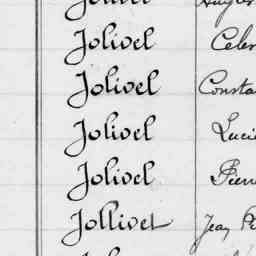 Jolivel
Jolivel Consta
Jolivel Lucie
Jolivel Pierr
Jollivet Jean